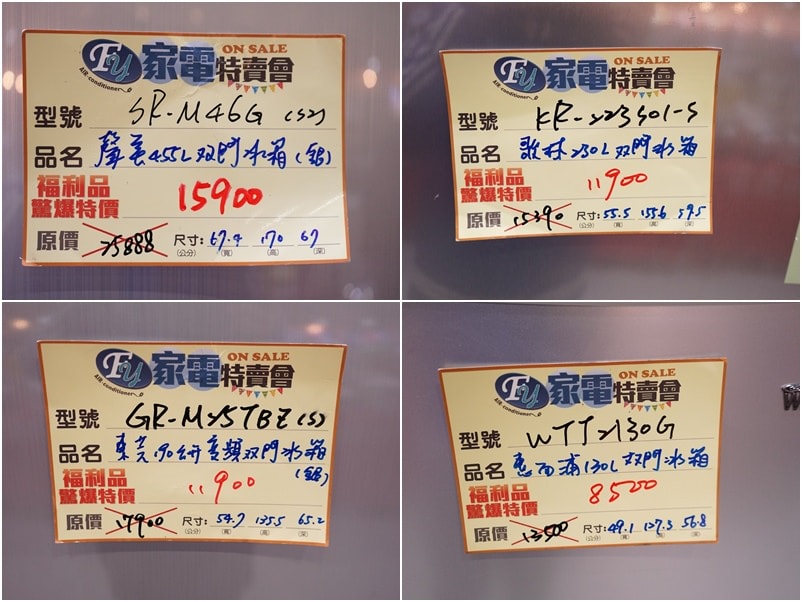 FY 家電特賣會 ON SALE
AIR-conditioner
型號 SR-M46G (S2)
品名 聲寶455L双門冰箱(銀)
福利品
驚爆特價 15900
原價 25888 尺寸: 67.4 170 67
(公分) (寬) (高) (深)
FY 家電特賣會 ON SALE
AIR-conditioner
型號 KR-223S01-S
品名 歌林230L双門冰箱
福利品
驚爆特價 11900
原價 15390 尺寸: 55.5 155.6 59.5
(公分) (寬) (高) (深)
FY 家電特賣會 ON SALE
AIR-conditioner
型號 GR-M25TBZ(S)
品名 東芝190公升變頻双門冰箱
(銀)
福利品
驚爆特價 11900
原價 17900 尺寸: 54.7 135.5 65.2
(公分) (寬) (高) (深)
FY 家電特賣會 ON SALE
AIR-conditioner
型號 WTT2130G
品名 惠而浦130L双門冰箱
福利品
驚爆特價 8500
原價 13500 尺寸: 49.1 127.3 56.8
(公分) (寬) (高) (深)